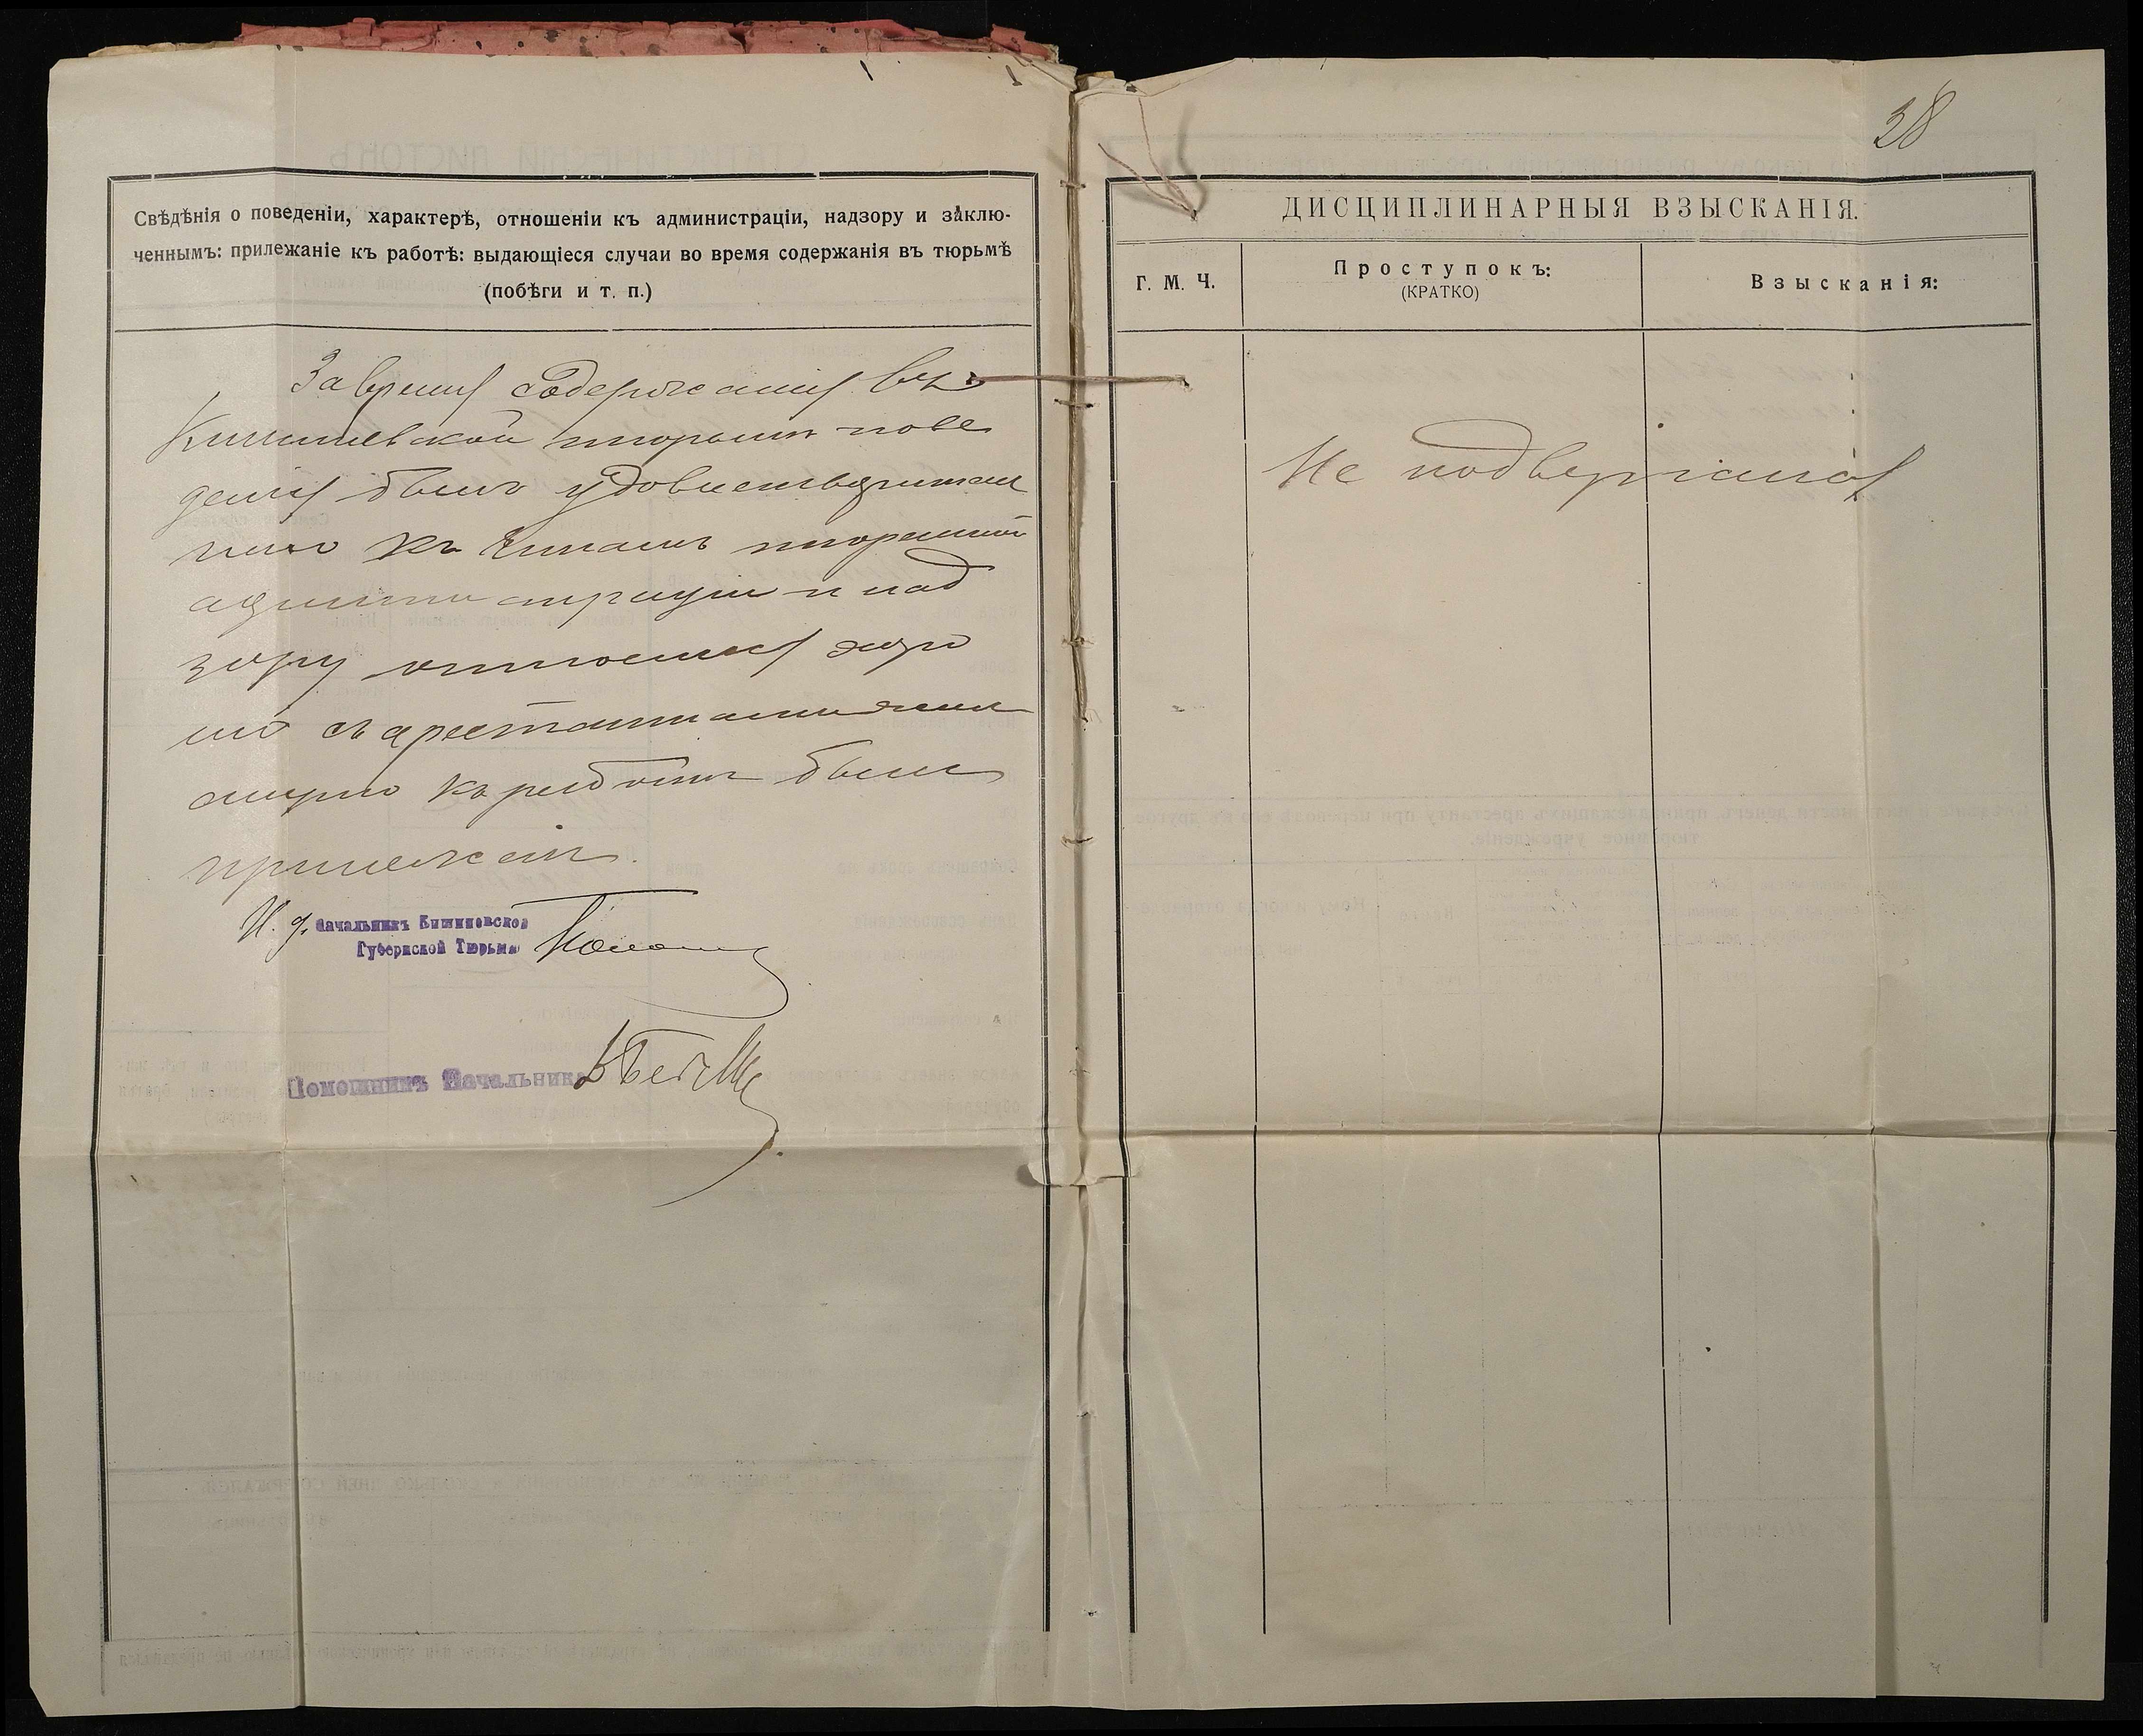 Свѣдѣнія о поведеніи, характерѣ, отношеніи къ администраціи, надзору и заклю-
ченнымъ: прилежаніе къ работѣ: выдающіеся случаи во время содержанія въ тюрьмѣ
(побѣги и т. п.)
За время содержания въ
Кишиневской тюрьмѣ пове
денія былъ удовлетворитель
наго къ чинамъ тюремной
администраціи и над
зору относился хоро
шо съ арестантами жил
смирно къ работѣ былъ
прилеженъ.
И. д. Начальникъ Кишиневской
Губернской Тюрьмы
Помощникъ Начальника
38
ДИСЦИПЛИНАРНЫЯ ВЗЫСКАНІЯ.
Г. М. Ч.
Проступокъ:
(КРАТКО)
Взысканія:
Не подвергался